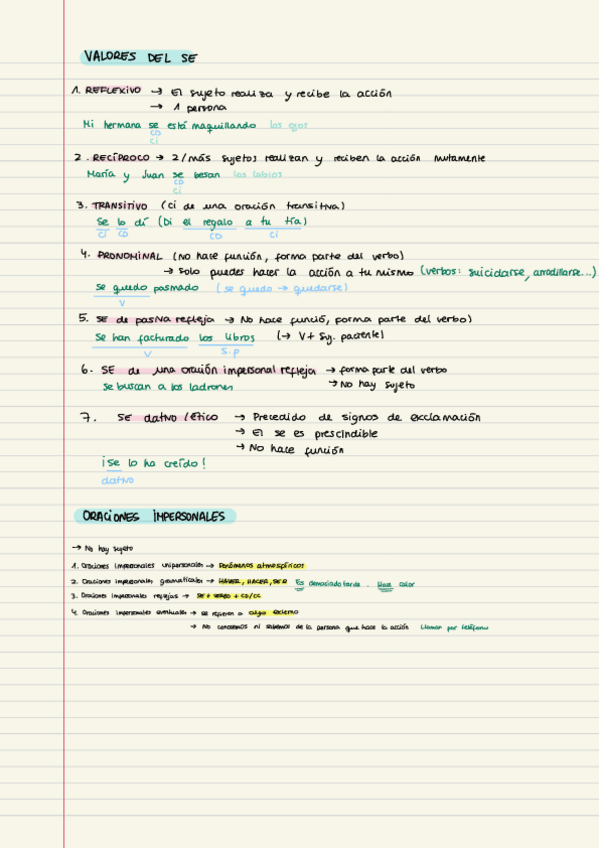 VALORES DEL SE
1. REFLEXIVO → El sujeto realiza y recibe la acción
→ 1 persona
Mi hermana se está maquillando los ojos
CD
CI
2. RECÍPROCO → 2/más sujetos realizan y reciben la acción mutamente
María y Juan se besan los labios
CD
CI
3. TRANSITIVO (CI de una oración transitiva)
Se lo di (Di el regalo a tu tía)
CI CD CD CI
4. PRONOMINAL (no hace función, forma parte del verbo)
→ Solo puedes hacer la acción a tu mismo (verbos: suicidarse, arrodillarse...)
Se quedo pasmado (se quedo → quedarse)
V
5. SE de pasiva refleja → No hace funció, forma parte del verbo)
Se han facturado los libros (→ V + Suj. paciente)
V S.P
6. SE de una oración impersonal refleja → forma parte del verbo
Se buscan a los ladrones → No hay sujeto
7. SE dativo /ético → Precedido de signos de exclamación
→ El se es prescindible
→ No hace función
¡Se lo ha creído!
dativo
ORACIONES IMPERSONALES
→ No hay sujeto
1. Oraciones impersonales unipersonales → Fenómenos atmosféricos
2. Oraciones impersonales gramaticales → HAVER, HACER, SER Es demasiado tarde. Hace calor
3. Oraciones impersonales reflejas → SE + VERBO + CD/CC
4. Oraciones impersonales eventuales → se refieren a algo externo
→ No conocemos ni sabemos de la persona que hace la acción Llaman por teléfono